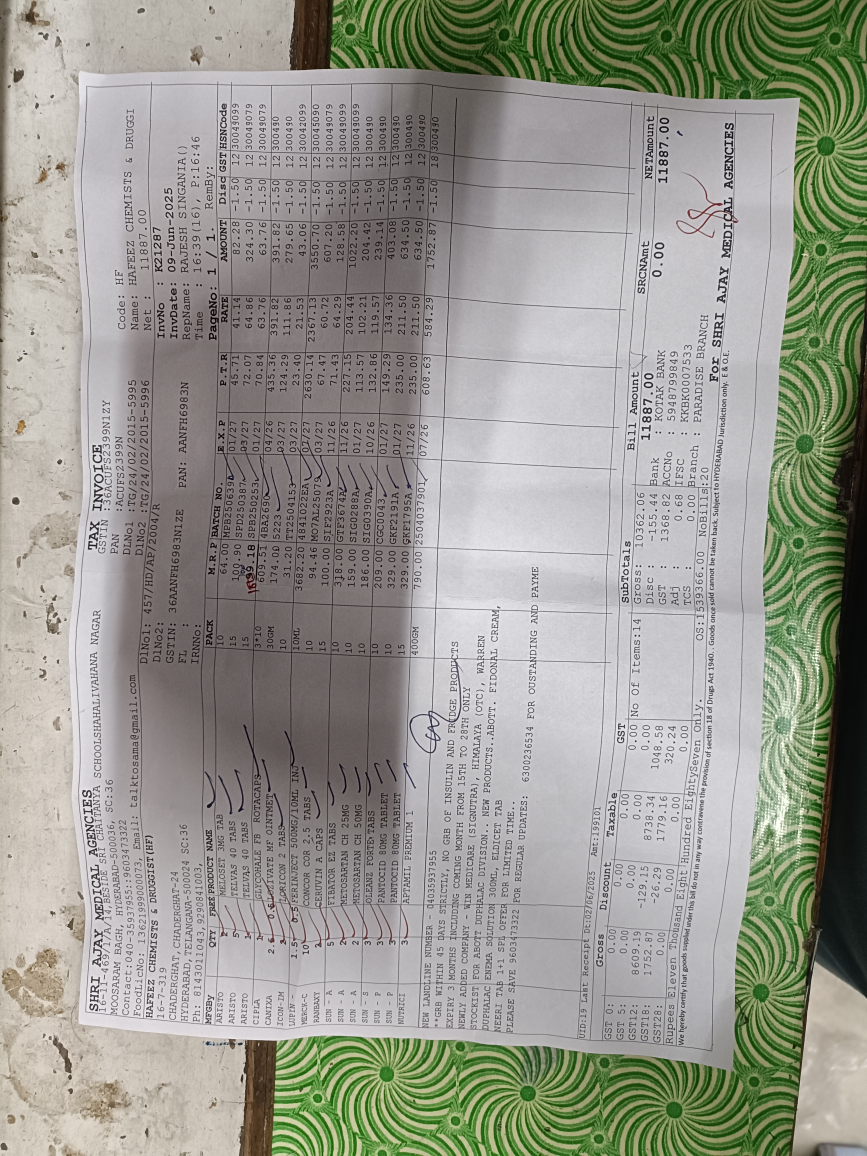 TAX INVOICE
SHRI AJAY MEDICAL AGENCIES
16-11-469/1/A/14,BESIDE SRI CHAITANYA SCHOOLSHAHALIVAHANA NAGAR
MOOSARAM BAGH, HYDERABAD-500036, SC:36
Contact:040-35937955:9603473322
FoodLicNo: 13621999000073, Email: talktosama@gmail.com
GSTIN :36ACUFS2399N1ZY
PAN :ACUFS2399N
DlNo1 :TG/24/02/2015-5995
DlNo2 :TG/24/02/2015-5996
Code: HF
Name: HAFEEZ CHEMISTS & DRUGGI
Net : 11887.00
HAFEEZ CHEMISTS & DRUGGIST(HF)
16-7-319
CHADERGHAT,CHADERGHAT-24
HYDERABAD,TELANGANA-500024 SC:36
Ph:8143011043,9290841003
DlNo1: 457/HD/AP/2004/R
DlNo2:
GSTIN: 36AANFH6983N1ZE
FL :
PAN: AANFH6983N
IRNNo:
InvNo : K21287
InvDate: 09-Jun-2025
RepName: RAJESH SINGANIA()
Time : 16:39(16), P:16:46
PageNo: 1 / 1. RemBy:
MFGBy QTY FREE PRODUCT NAME PACK M.R.P BATCH NO. E.X.P P.T.R RATE AMOUNT Disc GST HSNCode
ARISTO NELOSET 3MG TAB 10 64.00 MPB250639 01/27 45.71 41.14 82.28 -1.50 12 30049099
ARISTO 5 TELVAS 40 TABS 15 100.90 SPD250387 03/27 72.07 64.86 324.30 -1.50 12 30049079
ARISTO 1 TELVAS 40 TABS 15 SPB250253 01/27 70.84 63.76 63.76 -1.50 12 30049079
CIPLA 1 GLYCOHALE FB ROTACAPS 3*10 609.51 4BA2690 04/26 435.36 391.82 391.82 -1.50 12 300490
CANIXA MF OINTMENT 30GM 174.00 5223 03/27 124.29 111.86 279.65 -1.50 12 300490
ICON-LM TABS 10 31.20 TT2504153 03/27 23.40 21.53 43.06 -1.50 12 30042099
LUPIN 1.5 0.5 FERINJECT 500MG/10ML INJ 10ML 3682.20 4841022EA 07/27 2630.14 2367.13 3550.70 -1.50 12 30045090
MERCK-C 10 CONCOR COR 2.5 TABS 10 94.46 MO7AL25079 03/27 67.47 60.72 607.20 -1.50 12 30049079
RANBAXY 2 CERUVIN A CAPS 15 100.00 SIF2923A 11/26 71.43 64.29 128.58 -1.50 12 30049099
SUN - A 5 FIBATOR EZ TABS 10 318.00 GTF3674A 11/26 227.15 204.44 1022.20 -1.50 12 30049099
SUN - A 2 METOSARTAN CH 25MG 10 159.00 SIG0288A 01/27 113.57 102.21 204.42 -1.50 12 300490
SUN - A 2 METOSARTAN CH 50MG 10 186.00 SIG0390A 10/26 132.86 119.57 239.14 -1.50 12 300490
SUN - S 3 OLEANZ FORTE TABS 10 209.00 CGC0043 01/27 149.29 134.36 403.08 -1.50 12 300490
SUN - P 3 PANTOCID 80MG TABLET 10 329.00 GKF2191A 01/27 235.00 211.50 634.50 -1.50 12 300490
SUN - P 3 PANTOCID 80MG TABLET 15 329.00 GKF1795A 11/26 235.00 211.50 634.50 -1.50 12 300490
NUTRICI 3 APTAMIL PREMIUM 1 400GM 790.00 2504037901 07/26 608.63 584.29 1752.87 -1.50 18 300490
NEW LANDLINE NUMBER - 04035937955
**GRB WITHIN 45 DAYS STRICTLY, NO GRB OF INSULIN AND FRIDGE PRODUCTS
EXPIRY 3 MONTHS INCLUDING COMING MONTH FROM 15TH TO 28TH ONLY
NEWLY ADDED COMPANY - WIN MEDICARE (SIGNUTRA), HIMALAYA (OTC), WARREN
STOCKIST FOR ABOTT DUPHALAC DIVISION.. NEW PRODUCTS..ABOTT. FIDONAL CREAM,
DUPHALAC ENEMA SOLUTION 300ML, ELDICET TAB
NEERI TAB 1+1 SPL OFFER FOR LIMITED TIME..
PLEASE SAVE 9603473322 FOR REGULAR UPDATES: 6300236534 FOR OUSTANDING AND PAYME
UID:19 Last Receipt Dt:02/06/2025 Amt:199101
Gross Discount Taxable GST
GST 0: 0.00 0.00 0.00 0.00
GST 5: 0.00 0.00 0.00 0.00
GST12: 8609.19 -129.15 8738.34 1048.58
GST18: 1752.87 -26.29 1779.16 320.24
GST28: 0.00 0.00 0.00 0.00
No Of Items:14
SubTotals
Gross: 10362.06
Disc : -155.44
GST : 1368.82
Adj : 0.68
TCS : 0.00
Bill Amount SRCNAmt NETAmount
11887.00 0.00 11887.00
Bank : KOTAK BANK
ACCNo : 5948799849
IFSC : KKBK0007533
Branch : PARADISE BRANCH
Rupees Eleven Thousand Eight Hundred EightySeven Only. OS:1539366.00 NoBills:20
We hereby certify that goods supplied under this bill do not in any way contravene the provision of section 18 of Drugs Act 1940. . Goods once sold cannot be taken back. Subject to HYDERABAD Jurisdiction only. E & O.E.
For SHRI AJAY MEDICAL AGENCIES